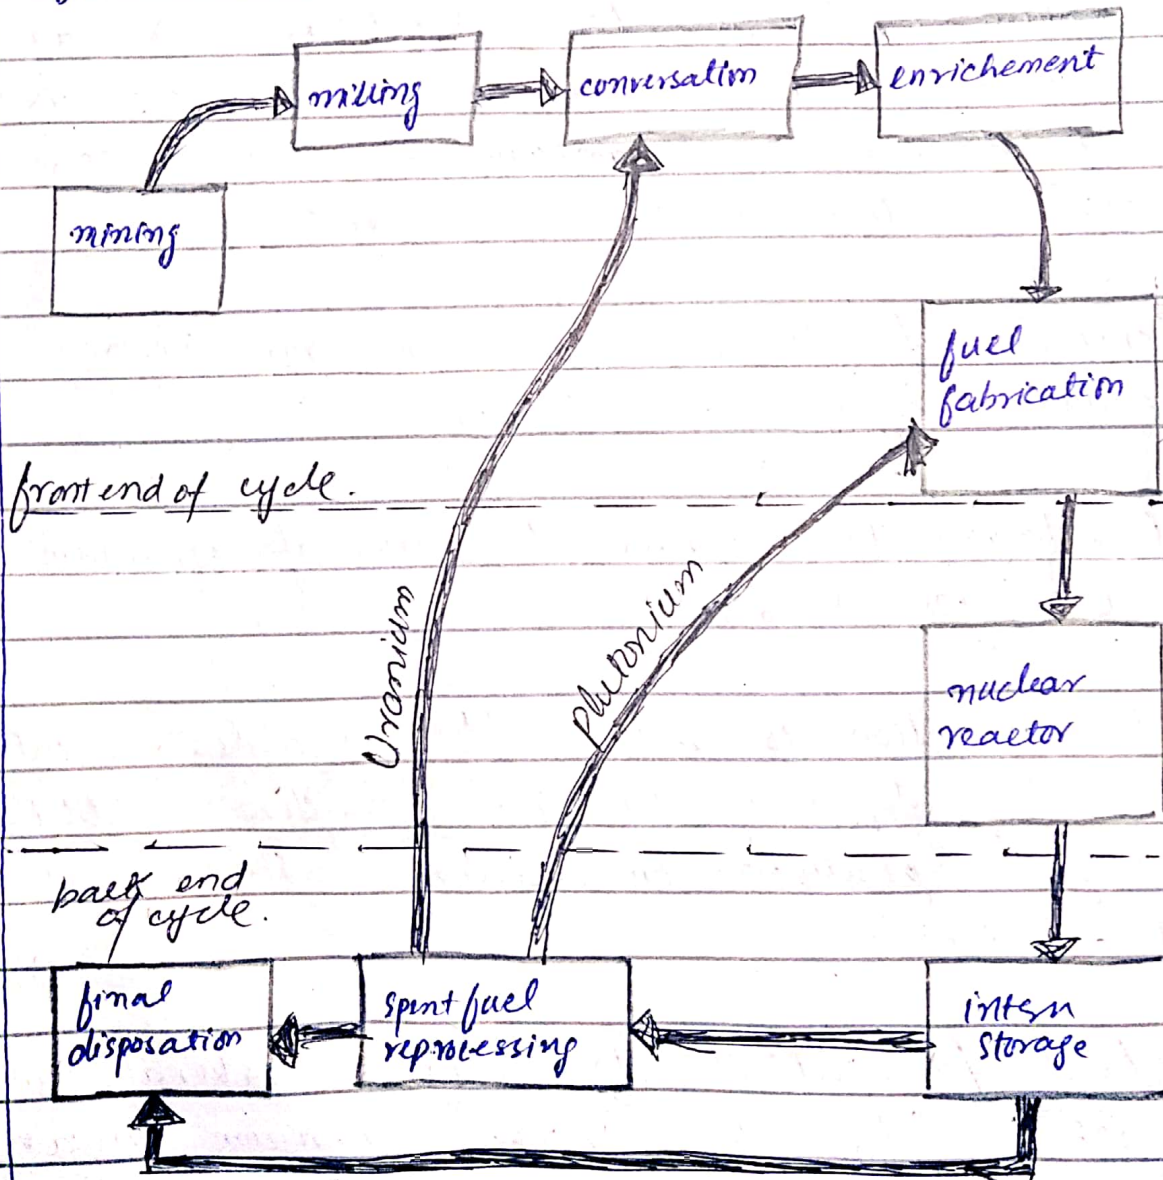 milling
conversation
enrichement
mining
fuel
fabrication
front end of cycle.
Uranium
plutonium
nuclear
reactor
back end
of cycle.
final
disposation
spent fuel
reprocessing
intem
storage